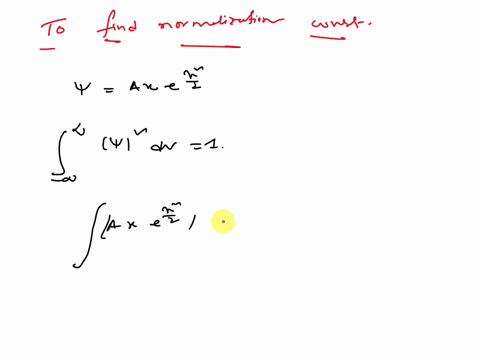 To find normalization const.
ψ = Ax e^{x²/2}
∫_{-∞}^{∞} (ψ)² dv = 1.
∫ (Ax e^{x²/2})